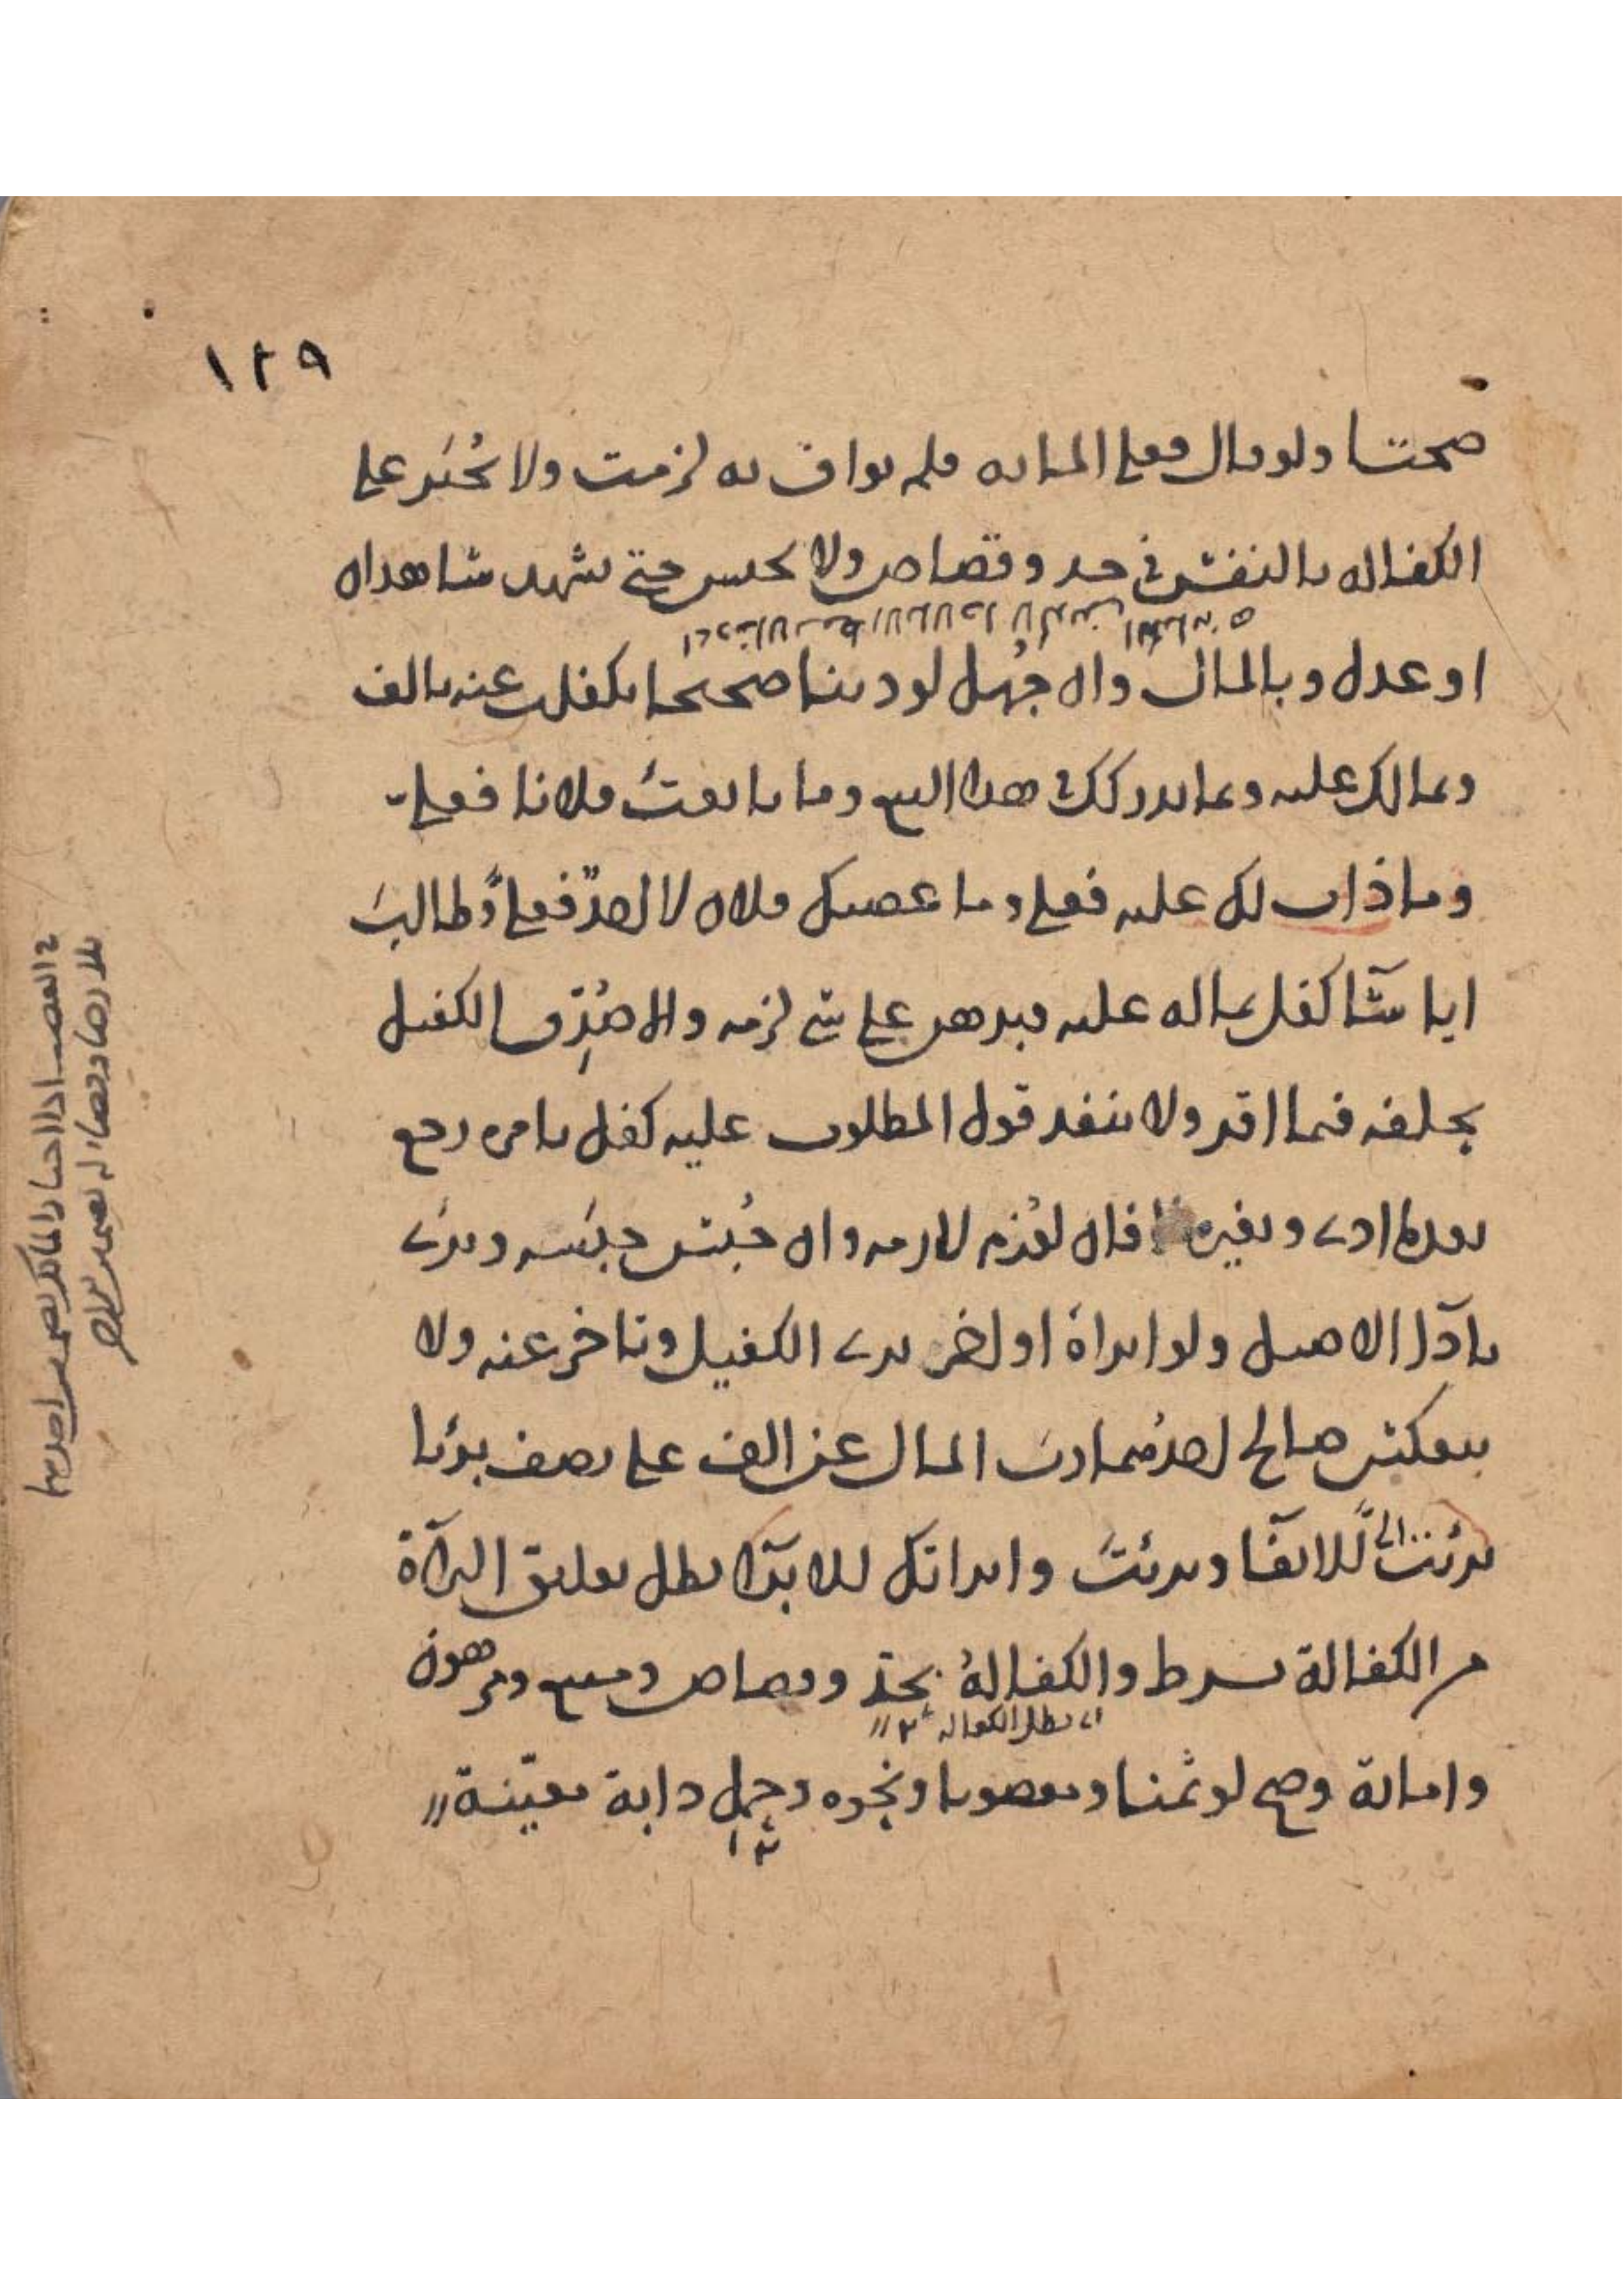 ١٢٩
صحتا ولو قال فعلي المايه فلم يواف به لزمت ولا يُجبَر علي
الكفاله بالنفس في حد وقصاص ولا يحبس حتي يشهد شاهدان
او عدل وبالمال وان جُهل لو دينا صحيحا بكفلت عنه بالف
وبمالك عليه وبما يدركك في هذا البيع وما بايعتَ فلانا فعليّ
وما ذاب لك عليه فعلي وما غصبك فلان لا احدٌ فعليّ وطالبَ
ايا شآ كفل بماله عليه فبرهن علي شي لزمه والا صُدِّق الكفيل
بحلفه فيما اقر ولا ينفذ قول المطلوب عليه كفل بامره رجع
بعد ما ادي وبغيره لا فان لُوزم لازمه وان حُبس حبَسه وبرَي
بادآ الاصيل ولو ابراهُ او اخر بري الكفيل وتاخر عنه ولا
ينعكس صالح احدهما ربَ المال عن الف علي نصف برئا
برئتَ الي للايفآ وبرئتَ وابراتك للابتدآ بطل تعليق البرآة
من الكفالة بشرط والكفالةُ بحدّ وقصاص ومبيع ومرهون
اي بطل الكفالة ١٢
وامانة وصح لو ثمنا ومغصوبا ونحوه وحمل دابة معيّنة
١٢